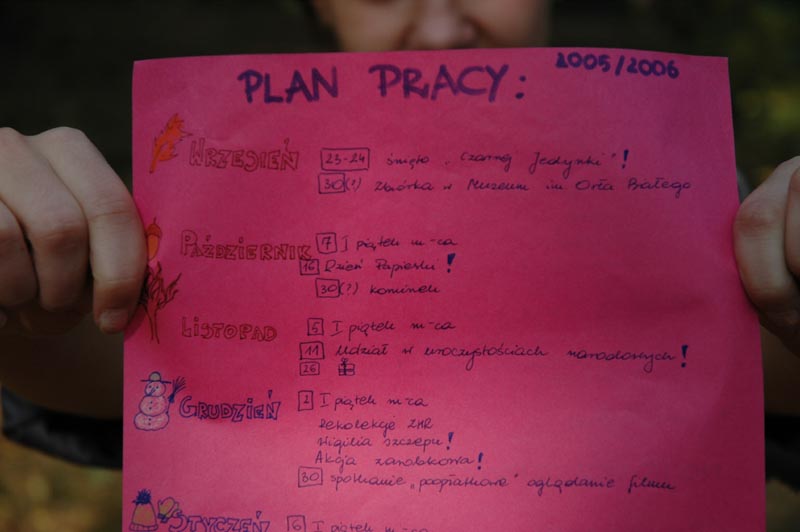 PLAN PRACY: 2005/2006
WRZESIEŃ 23-24 święto "Czarnej Jedynki"!
30(?) Zbiórka w Muzeum im Orła Białego
PAŹDZIERNIK 7 I piątek m-ca
16 Dzień Papieski!
30(?) kominek
LISTOPAD 5 I piątek m-ca
11 Udział w uroczystościach narodowych!
26
GRUDZIEŃ 2 I piątek m-ca
Rekolekcje ZHR
Wigilia szczepu!
Akcja zarobkowa!
30 spotkanie "popłatkowe" oglądanie filmu
STYCZEŃ 6 I piątek m-ca